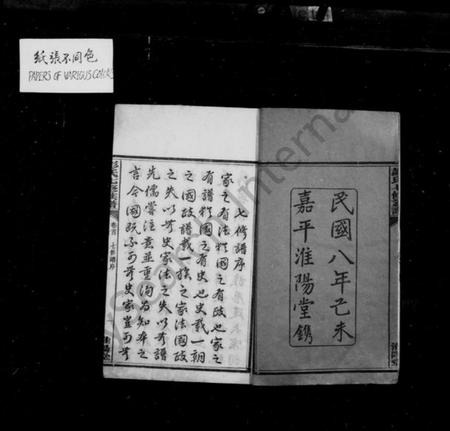 紙張不同色
PAPERS OF VARIOUS COLORS
民國八年己未
嘉平淮陽堂鐫
七修譜序
家之有法猶國之有政也家之
有譜猶國之有史也史載一朝
之國政譜載一族之家法國政
之失以考史家法之失以考譜
先儒嘗注意並重洵為知本之
言今國既不可無史家豈可無
卷首
七修譜序